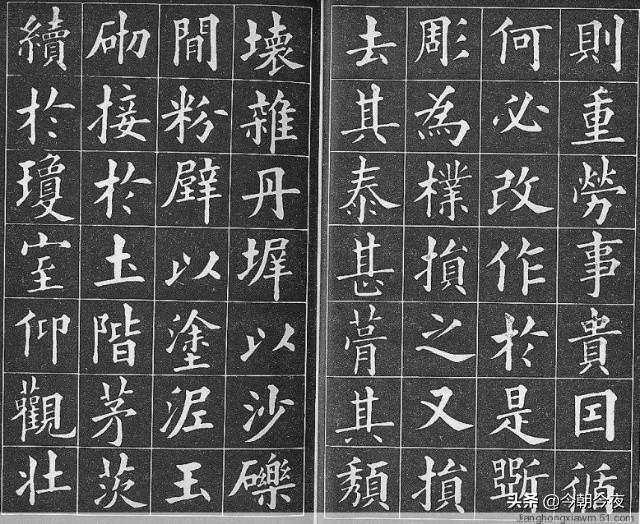 則重勞事貴因循
何必改作於是斲
彫為樸損之又損
去其泰甚葺其頹
壞雜丹墀以沙礫
閒粉壁以塗泥玉
砌接於土階茅茨
續於瓊室仰觀壯
头条 @今朝今夜
Jianghongxiawm.51.com